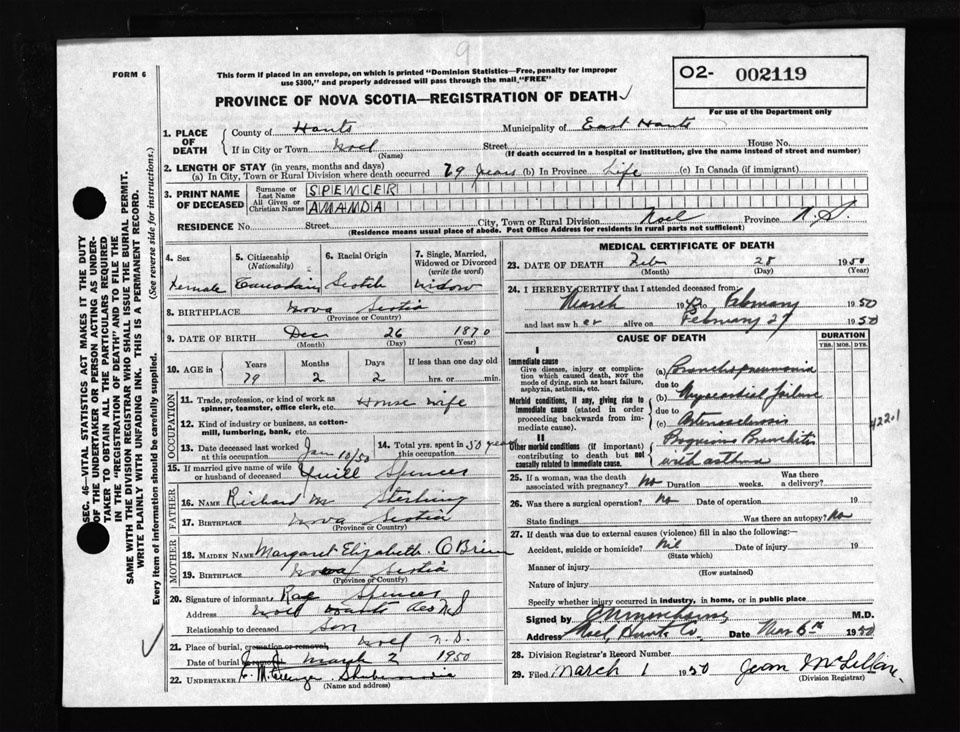 9
FORM 6
This form if placed in an envelope, on which is printed "Dominion Statistics—Free, penalty for improper
use $300," and properly addressed will pass through the mail, "FREE"
PROVINCE OF NOVA SCOTIA—REGISTRATION OF DEATH
O2- 002119
For use of the Department only
1. PLACE OF DEATH
County of Hants Municipality of East Hants
If in City or Town Noel Street House No.
(Name) (If death occurred in a hospital or institution, give the name instead of street and number)
2. LENGTH OF STAY (in years, months and days)
(a) In City, Town or Rural Division where death occurred 79 years (b) In Province Life (c) In Canada (if immigrant)
3. PRINT NAME OF DECEASED
Surname or Last Name SPENCER
All Given or Christian Names AMANDA
RESIDENCE No. Street City, Town or Rural Division Noel Province N.S.
(Residence means usual place of abode. Post Office Address for residents in rural parts not sufficient)
4. Sex Female
5. Citizenship (Nationality) Canadian
6. Racial Origin Scotch
7. Single, Married, Widowed or Divorced (write the word) Widow
8. BIRTHPLACE Nova Scotia
(Province or Country)
9. DATE OF BIRTH Dec 26 1870
(Month) (Day) (Year)
10. AGE in Years 79 Months 2 Days 2 If less than one day old hrs. or min.
OCCUPATION
11. Trade, profession, or kind of work as spinner, teamster, office clerk, etc. House wife
12. Kind of industry or business, as cotton-mill, lumbering, bank, etc.
13. Date deceased last worked at this occupation Jan 10/50
14. Total yrs. spent in this occupation 50 years
15. If married give name of wife or husband of deceased Spencer
FATHER
16. NAME Richard M Sterling
17. BIRTHPLACE Nova Scotia
(Province or Country)
MOTHER
18. MAIDEN NAME Margaret Elizabeth O'Brien
19. BIRTHPLACE Nova Scotia
(Province or Country)
20. Signature of informant Rae Spencer
Address Noel Hants Co N.S
Relationship to deceased Son
21. Place of burial, cremation or removal, Noel N.S.
Date of burial March 2 1950
22. UNDERTAKER Shubenacadie
(Name and address)
MEDICAL CERTIFICATE OF DEATH
23. DATE OF DEATH Feb 28 1950
(Month) (Day) (Year)
24. I HEREBY CERTIFY that I attended deceased from:
March February 1950
and last saw her alive on February 27 1950
CAUSE OF DEATH
DURATION
YRS. MOS. DYS.
I
Immediate cause
Give disease, injury or complication which caused death, NOT the mode of dying, such as heart failure, asphyxia, asthenia, etc.
(a) Bronchopneumonia
due to
Morbid conditions, if any, giving rise to immediate cause (stated in order proceeding backwards from immediate cause).
(b) Myocardial failure
due to
(c) Arteriosclerosis
422.1
II
Other morbid conditions (if important) contributing to death but not causally related to immediate cause.
Bronchitis
with asthma
25. If a woman, was the death associated with pregnancy? No Duration weeks. Was there a delivery?
26. Was there a surgical operation? No Date of operation 19
State findings Was there an autopsy? No
27. If death was due to external causes (violence) fill in also the following:—
Accident, suicide or homicide? Nil Date of injury 19
(State which)
Manner of injury
(How sustained)
Nature of injury
Specify whether injury occurred in industry, in home, or in public place
Signed by M.D.
Address Noel, Hants Co. Date Mar 6th 1950
28. Division Registrar's Record Number
29. Filed March 1 1950 Jean McLellan
(Division Registrar)
SEC. 46—VITAL STATISTICS ACT MAKES IT THE DUTY
OF THE UNDERTAKER OR PERSON ACTING AS UNDER-
TAKER TO OBTAIN ALL THE PARTICULARS REQUIRED
IN THE "REGISTRATION OF DEATH" AND TO FILE THE
SAME WITH THE DIVISION REGISTRAR WHO SHALL ISSUE THE BURIAL PERMIT.
WRITE PLAINLY WITH UNFADING INK. THIS IS A PERMANENT RECORD.
Every item of information should be carefully supplied. (See reverse side for instructions.)